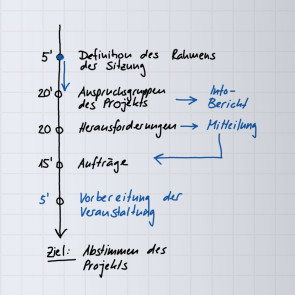 5' Definition des Rahmens
der Sitzung
20' Anspruchsgruppen → Info-
des Projekts Bericht
20 Herausforderungen → Mitteilung
15' Aufträge
5' Vorbereitung der
Veranstaltung
Ziel: Abstimmen des
Projekts